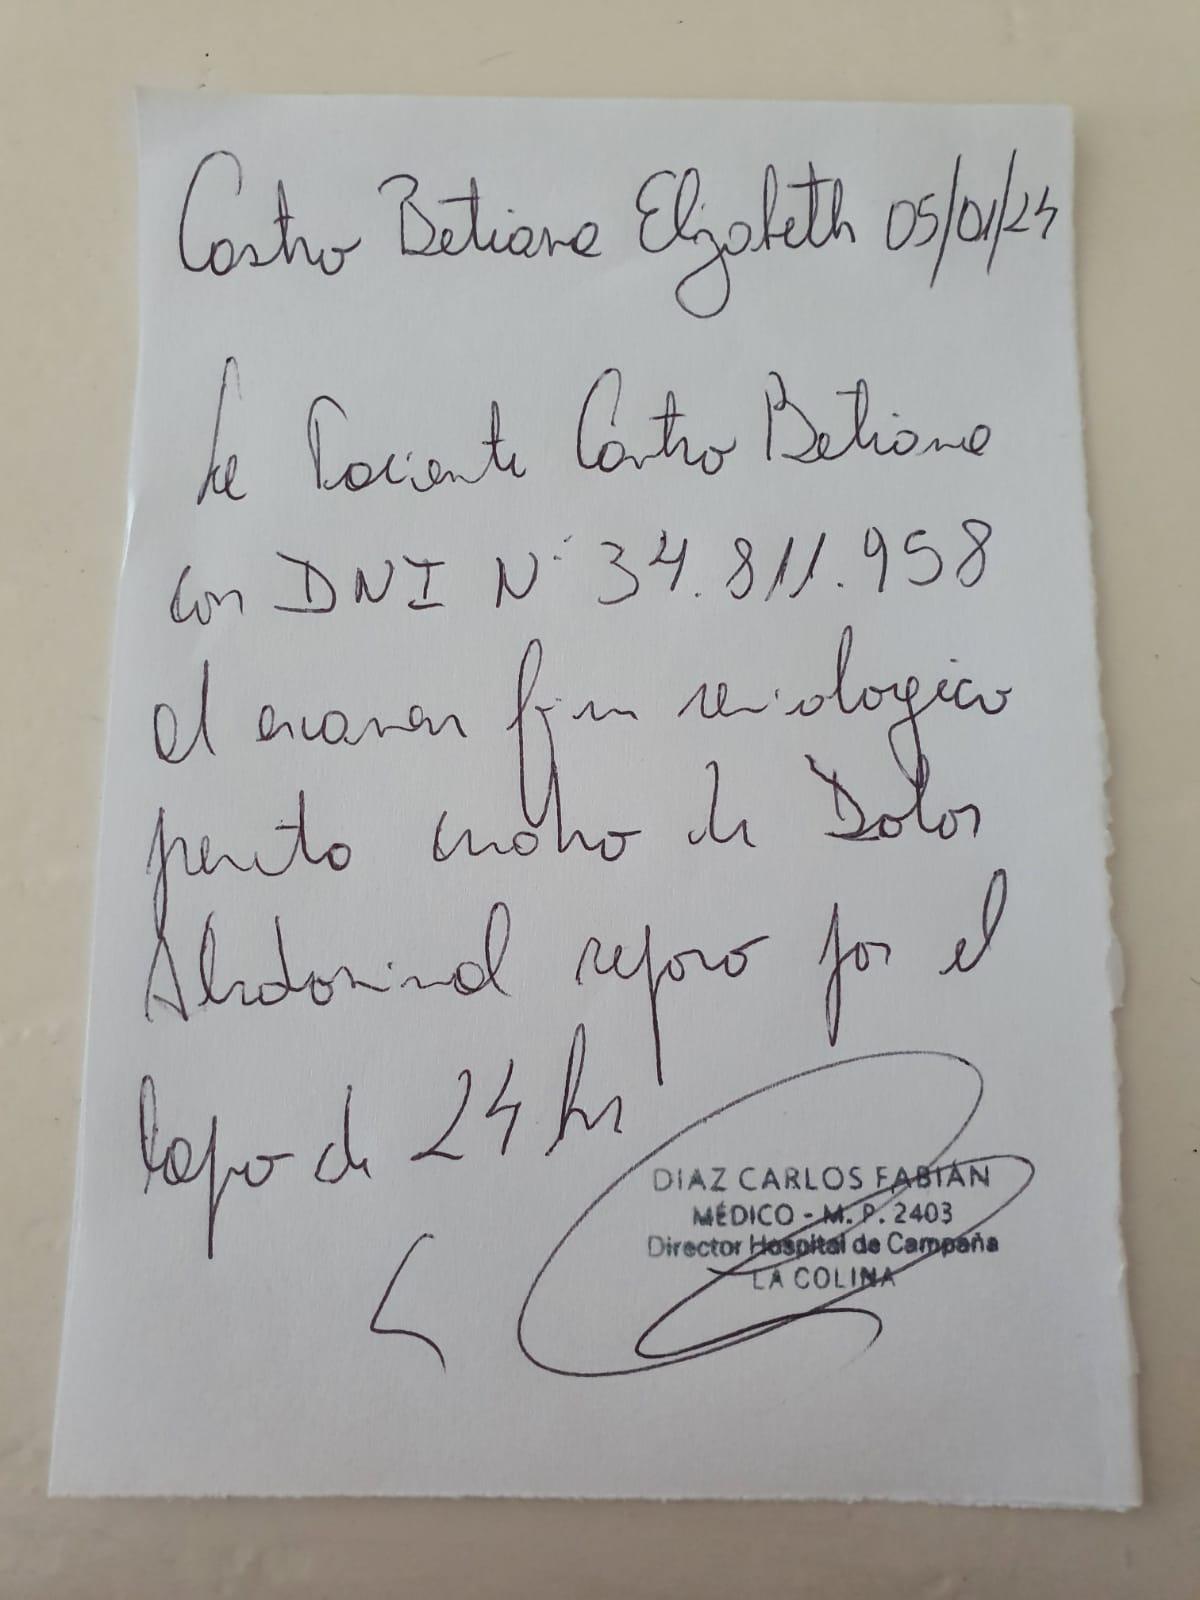 Castro Betiana Elizabeth 05/01/24
La Paciente Castro Betiana
con DNI N° 34.811.958
al examen fisico semiologico
presento cuadro de Dolor
Abdominal reposo por el
lapso de 24 hs
DIAZ CARLOS FABIÁN
MÉDICO - M. P. 2403
Director Hospital de Campaña
LA COLINA